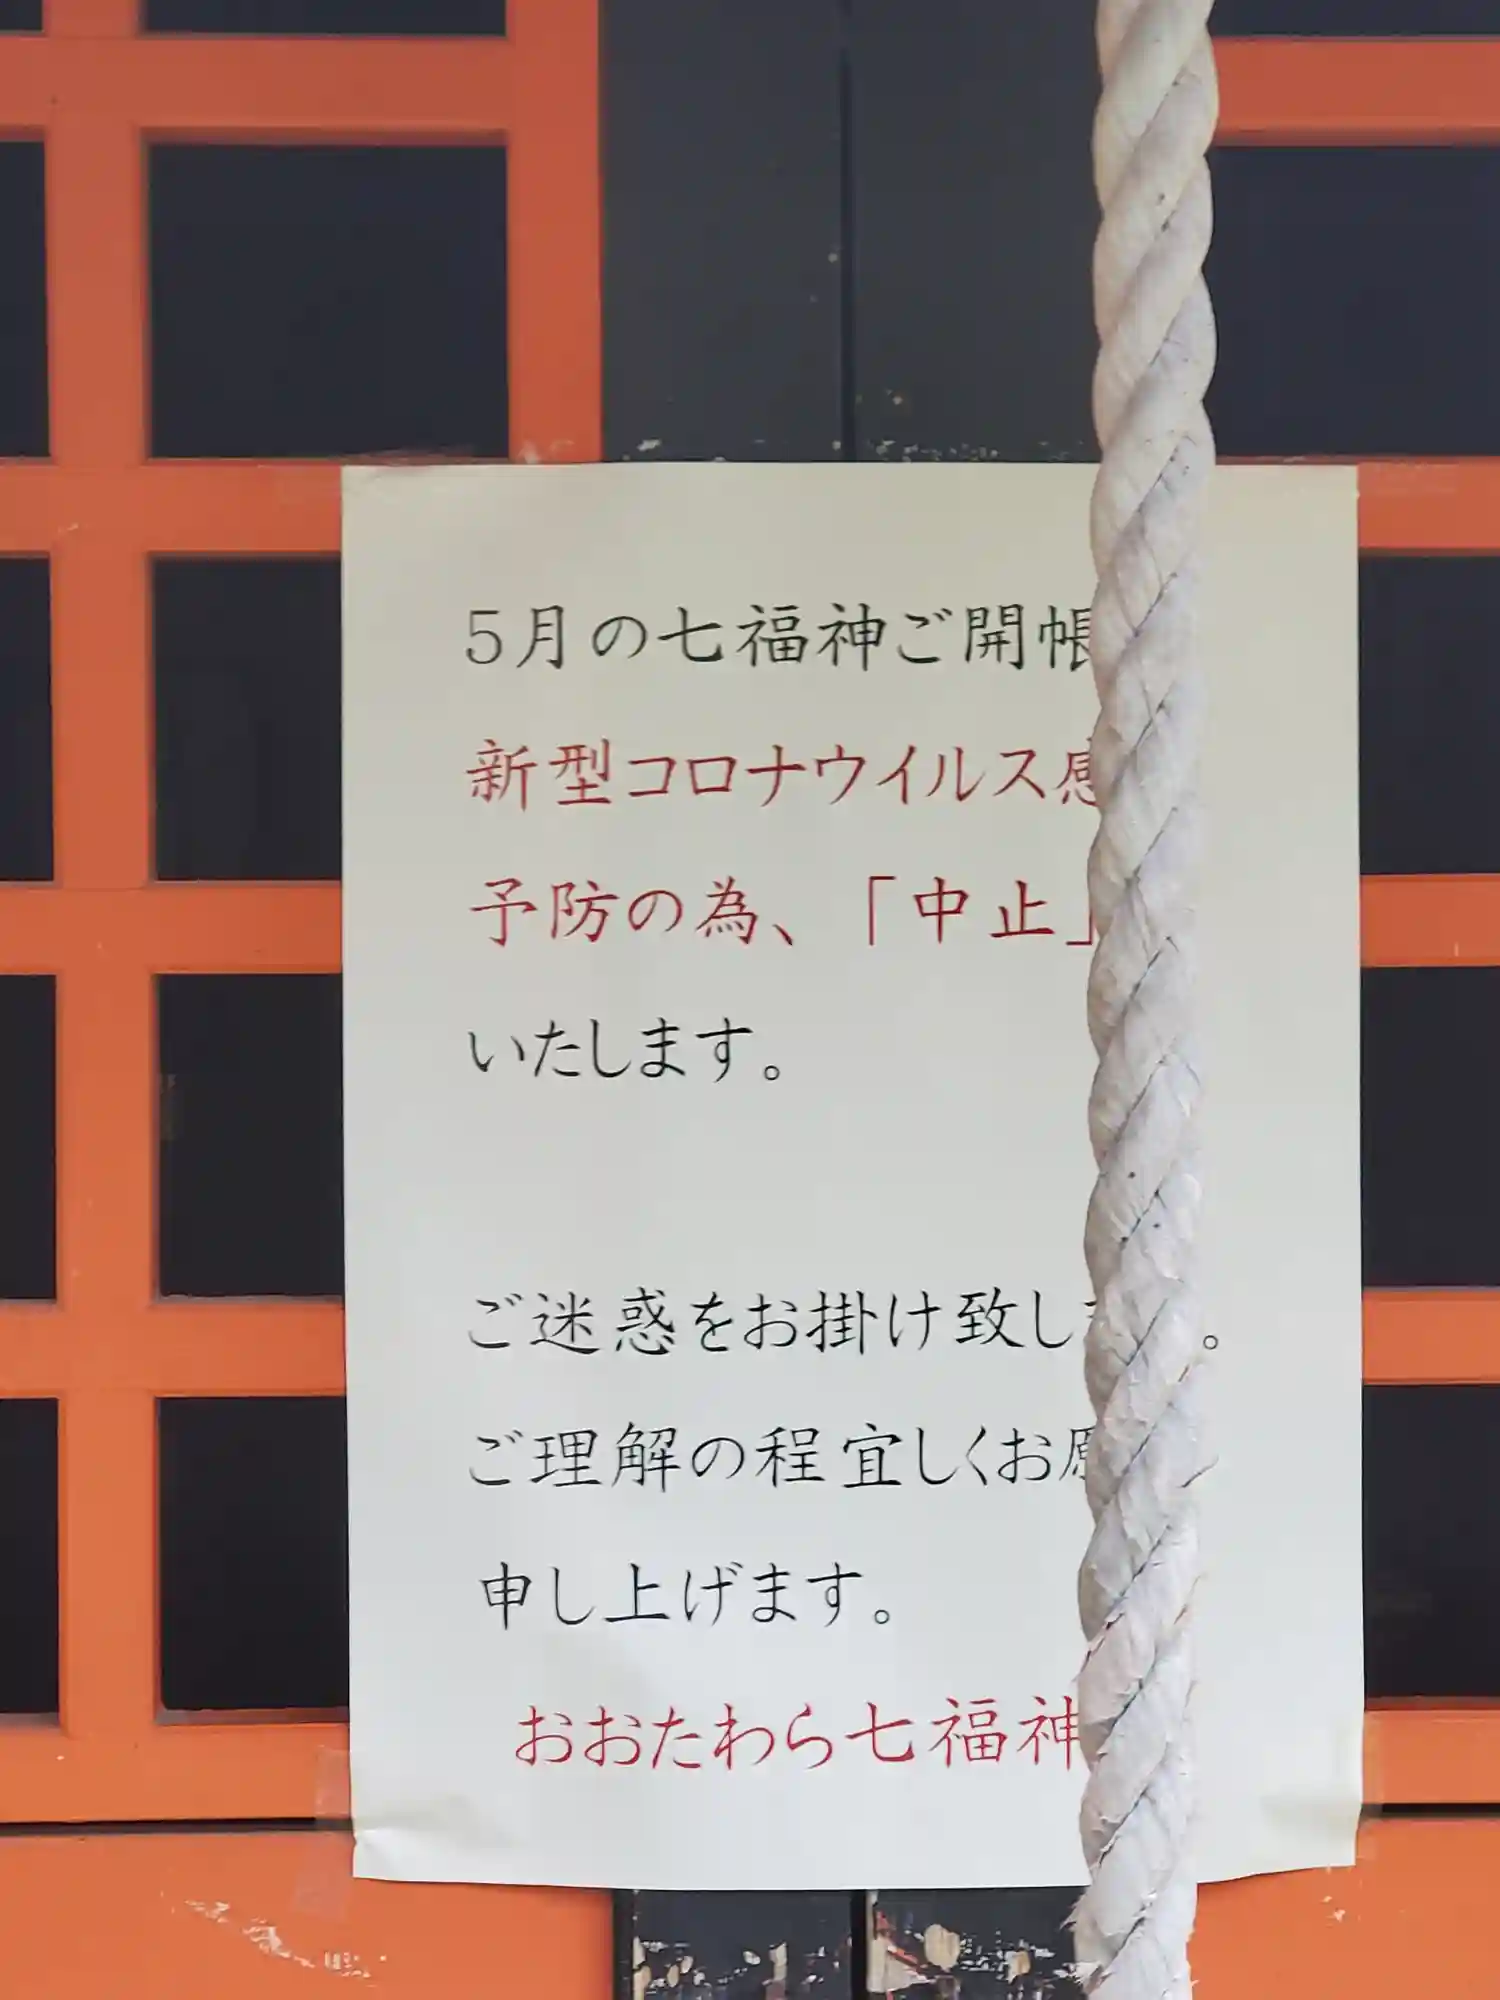 5月の七福神ご開帳
新型コロナウイルス感
予防の為、「中止」
いたします。
ご迷惑をお掛け致しま。
ご理解の程宜しくお願
申し上げます。
おおたわら七福神